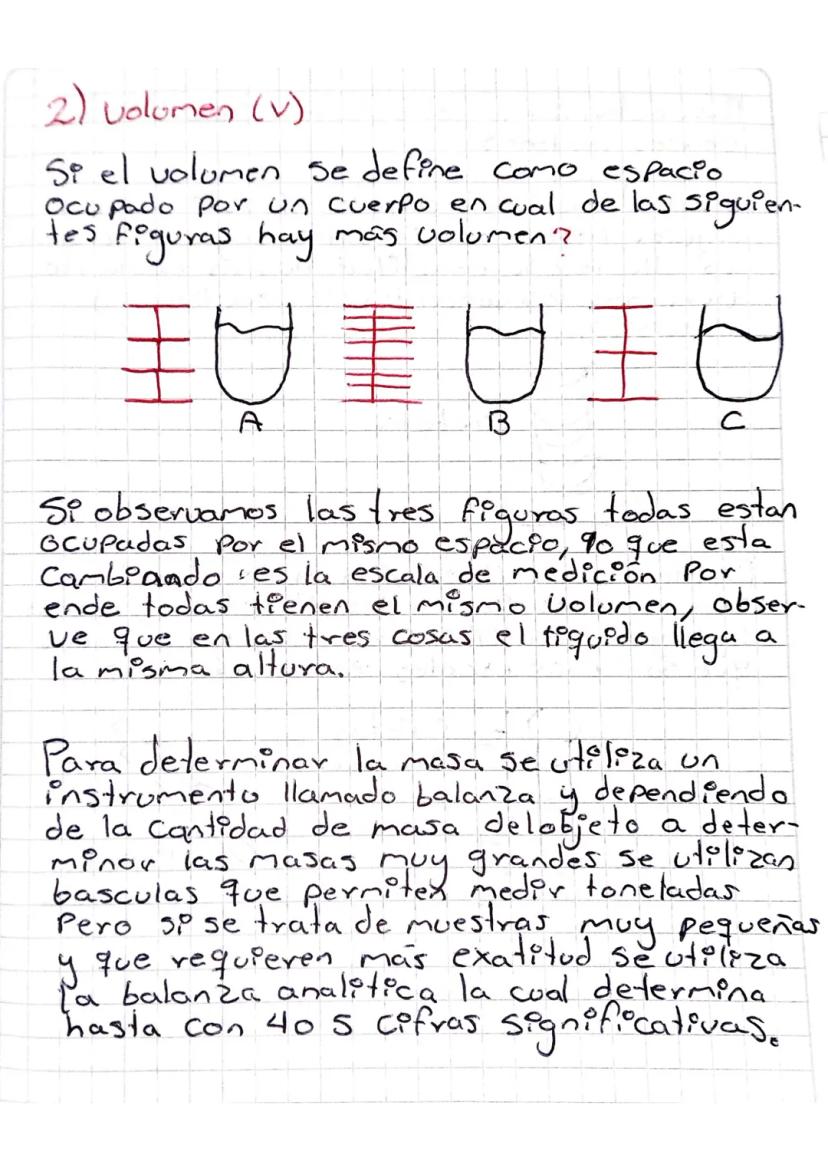 2) volumen (v)
Si el volumen se define como espacio
ocupado por un cuerpo en cual de las siguien-
tes figuras hay más volumen?
A
B
C
Si observamos las tres figuras todas estan
ocupadas por el mismo espacio, lo que esta
cambiando es la escala de medición Por
ende todas tienen el mismo volumen, obser-
ve que en las tres cosas el liquido llega a
la misma altura.
Para determinar la masa se utiliza un
instrumento llamado balanza y dependiendo
de la cantidad de masa del objeto a deter-
minar las masas muy grandes se utilizan
basculas que permiten medir toneladas
Pero si se trata de muestras muy pequeñas
y que requieren más exatitud se utiliza
la balanza analitica la cual determina
hasta con 4 o 5 cifras significativas.